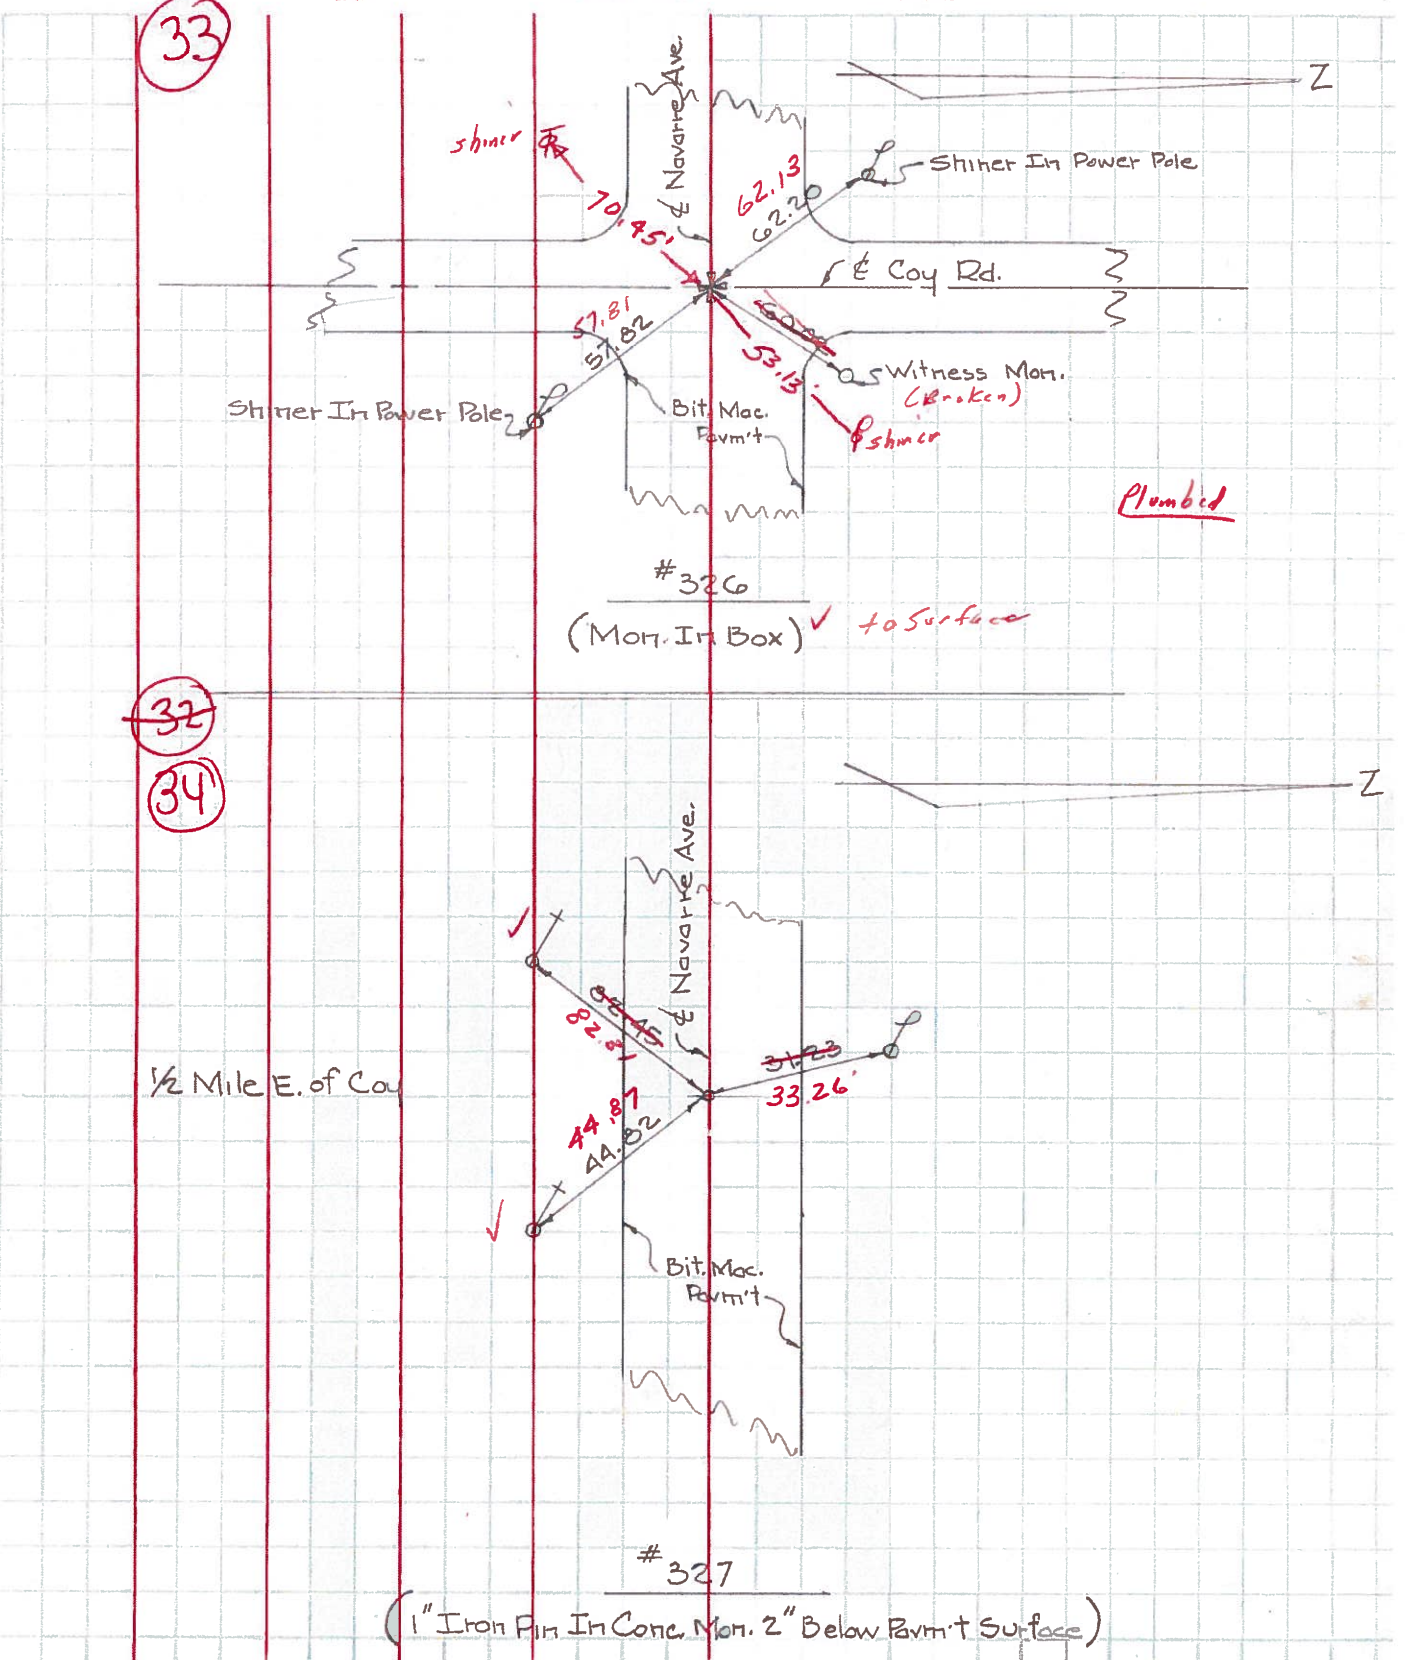 33
℄ Navarre Ave.
Z
shiner
70.45'
62.13
62.20
Shiner In Power Pole
℄ Coy Rd.
57.81
57.82
53.13'
Witness Mon.
(Broken)
Shiner In Power Pole
Bit. Mac.
Pavm't
shiner
Plumbed
#326
(Mon. In Box) ✓ to Surface
32
34
Z
℄ Navarre Ave.
82.45
82.81
31.23
33.26'
1/2 Mile E. of Coy
44.87
44.82
Bit. Mac.
Pavm't
#327
(1" Iron Pin In Conc. Mon. 2" Below Pavm't Surface)